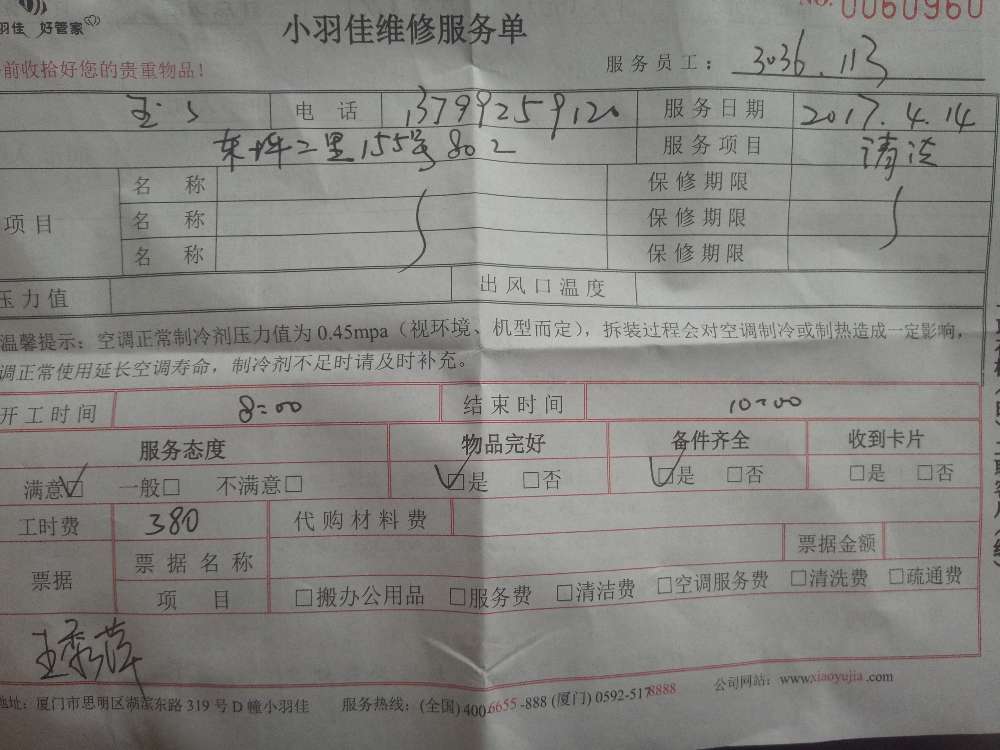 羽佳 好管家
NO. 0060960
小羽佳维修服务单
前收拾好您的贵重物品!
服务员工: 3036.113
电话 13799259120 服务日期 2017.4.14
东坪二里155号802 服务项目 清洗
项目 名称 保修期限
名称 保修期限
名称 保修期限
压力值 出风口温度
温馨提示:空调正常制冷剂压力值为 0.45mpa(视环境、机型而定),拆装过程会对空调制冷或制热造成一定影响,
调正常使用延长空调寿命,制冷剂不足时请及时补充。
开工时间 8=00 结束时间 10=00
服务态度 物品完好 备件齐全 收到卡片
满意☑ 一般□ 不满意□ ☑是 □否 ☑是 □否 □是 □否
工时费 380 代购材料费
票据 票据名称 票据金额
项目 □搬办公用品 □服务费 □清洁费 □空调服务费 □清洗费 □疏通费
王秀萍
地址:厦门市思明区湖滨东路 319 号 D 幢小羽佳 服务热线:(全国)400-6655-888 (厦门) 0592-5178888 公司网站:www.xiaoyujia.com